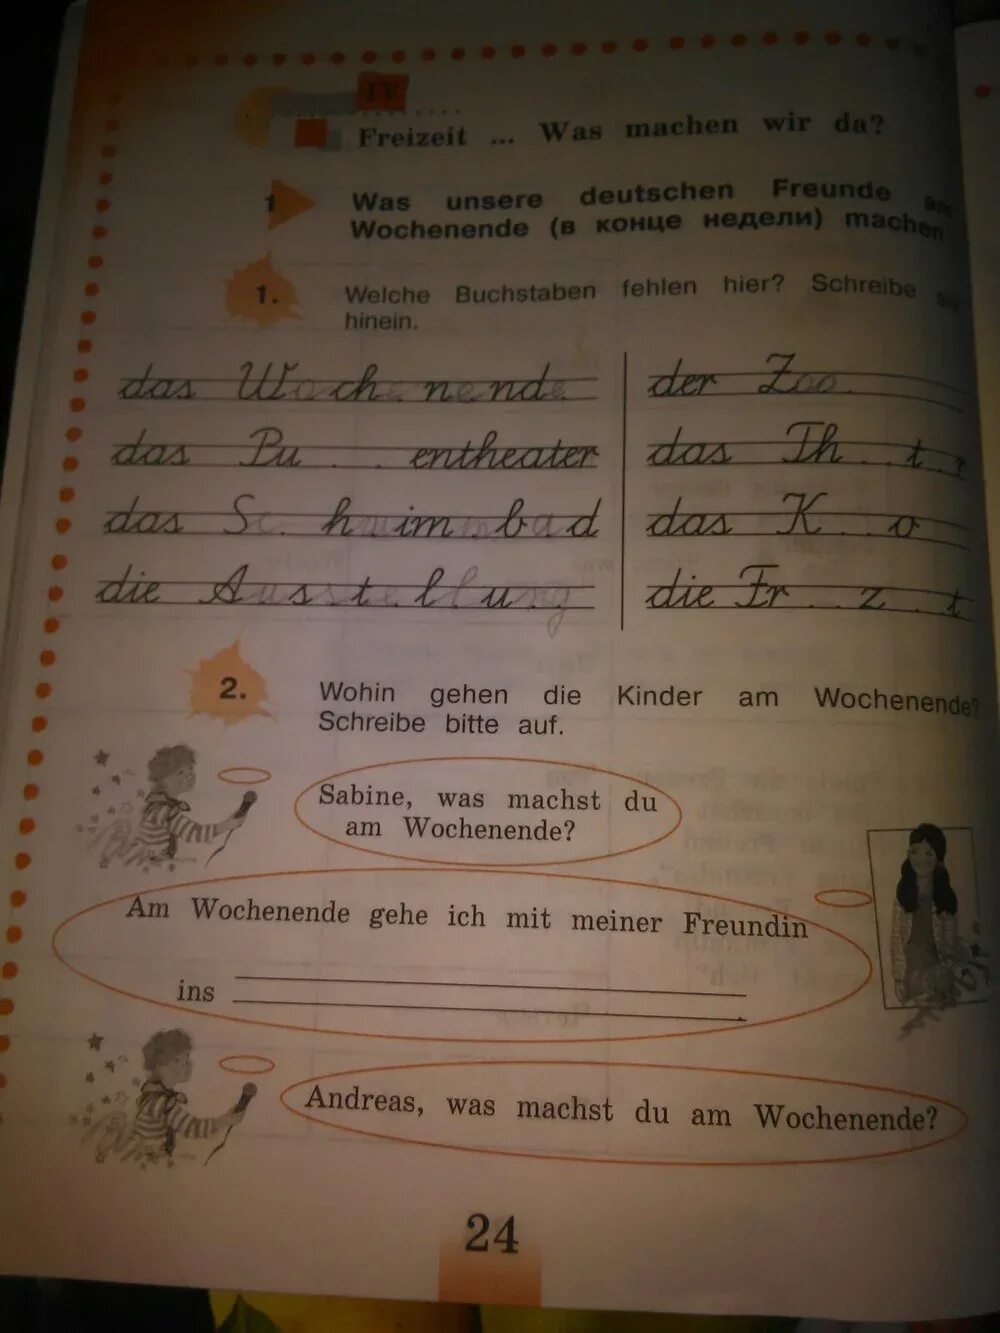 IV
Freizeit ... Was machen wir da?
1
Was unsere deutschen Freunde am
Wochenende (в конце недели) machen
1.
Welche Buchstaben fehlen hier? Schreibe sie
hinein.
das Wochenende
der Zoo
das Pu . . entheater
das Th . . t . r
das Sc h wim m b a d
das K . . o
die Ausstellung
die Fr . . z . . t
2.
Wohin gehen die Kinder am Wochenende?
Schreibe bitte auf.
Sabine, was machst du
am Wochenende?
Am Wochenende gehe ich mit meiner Freundin
ins
Andreas, was machst du am Wochenende?
24